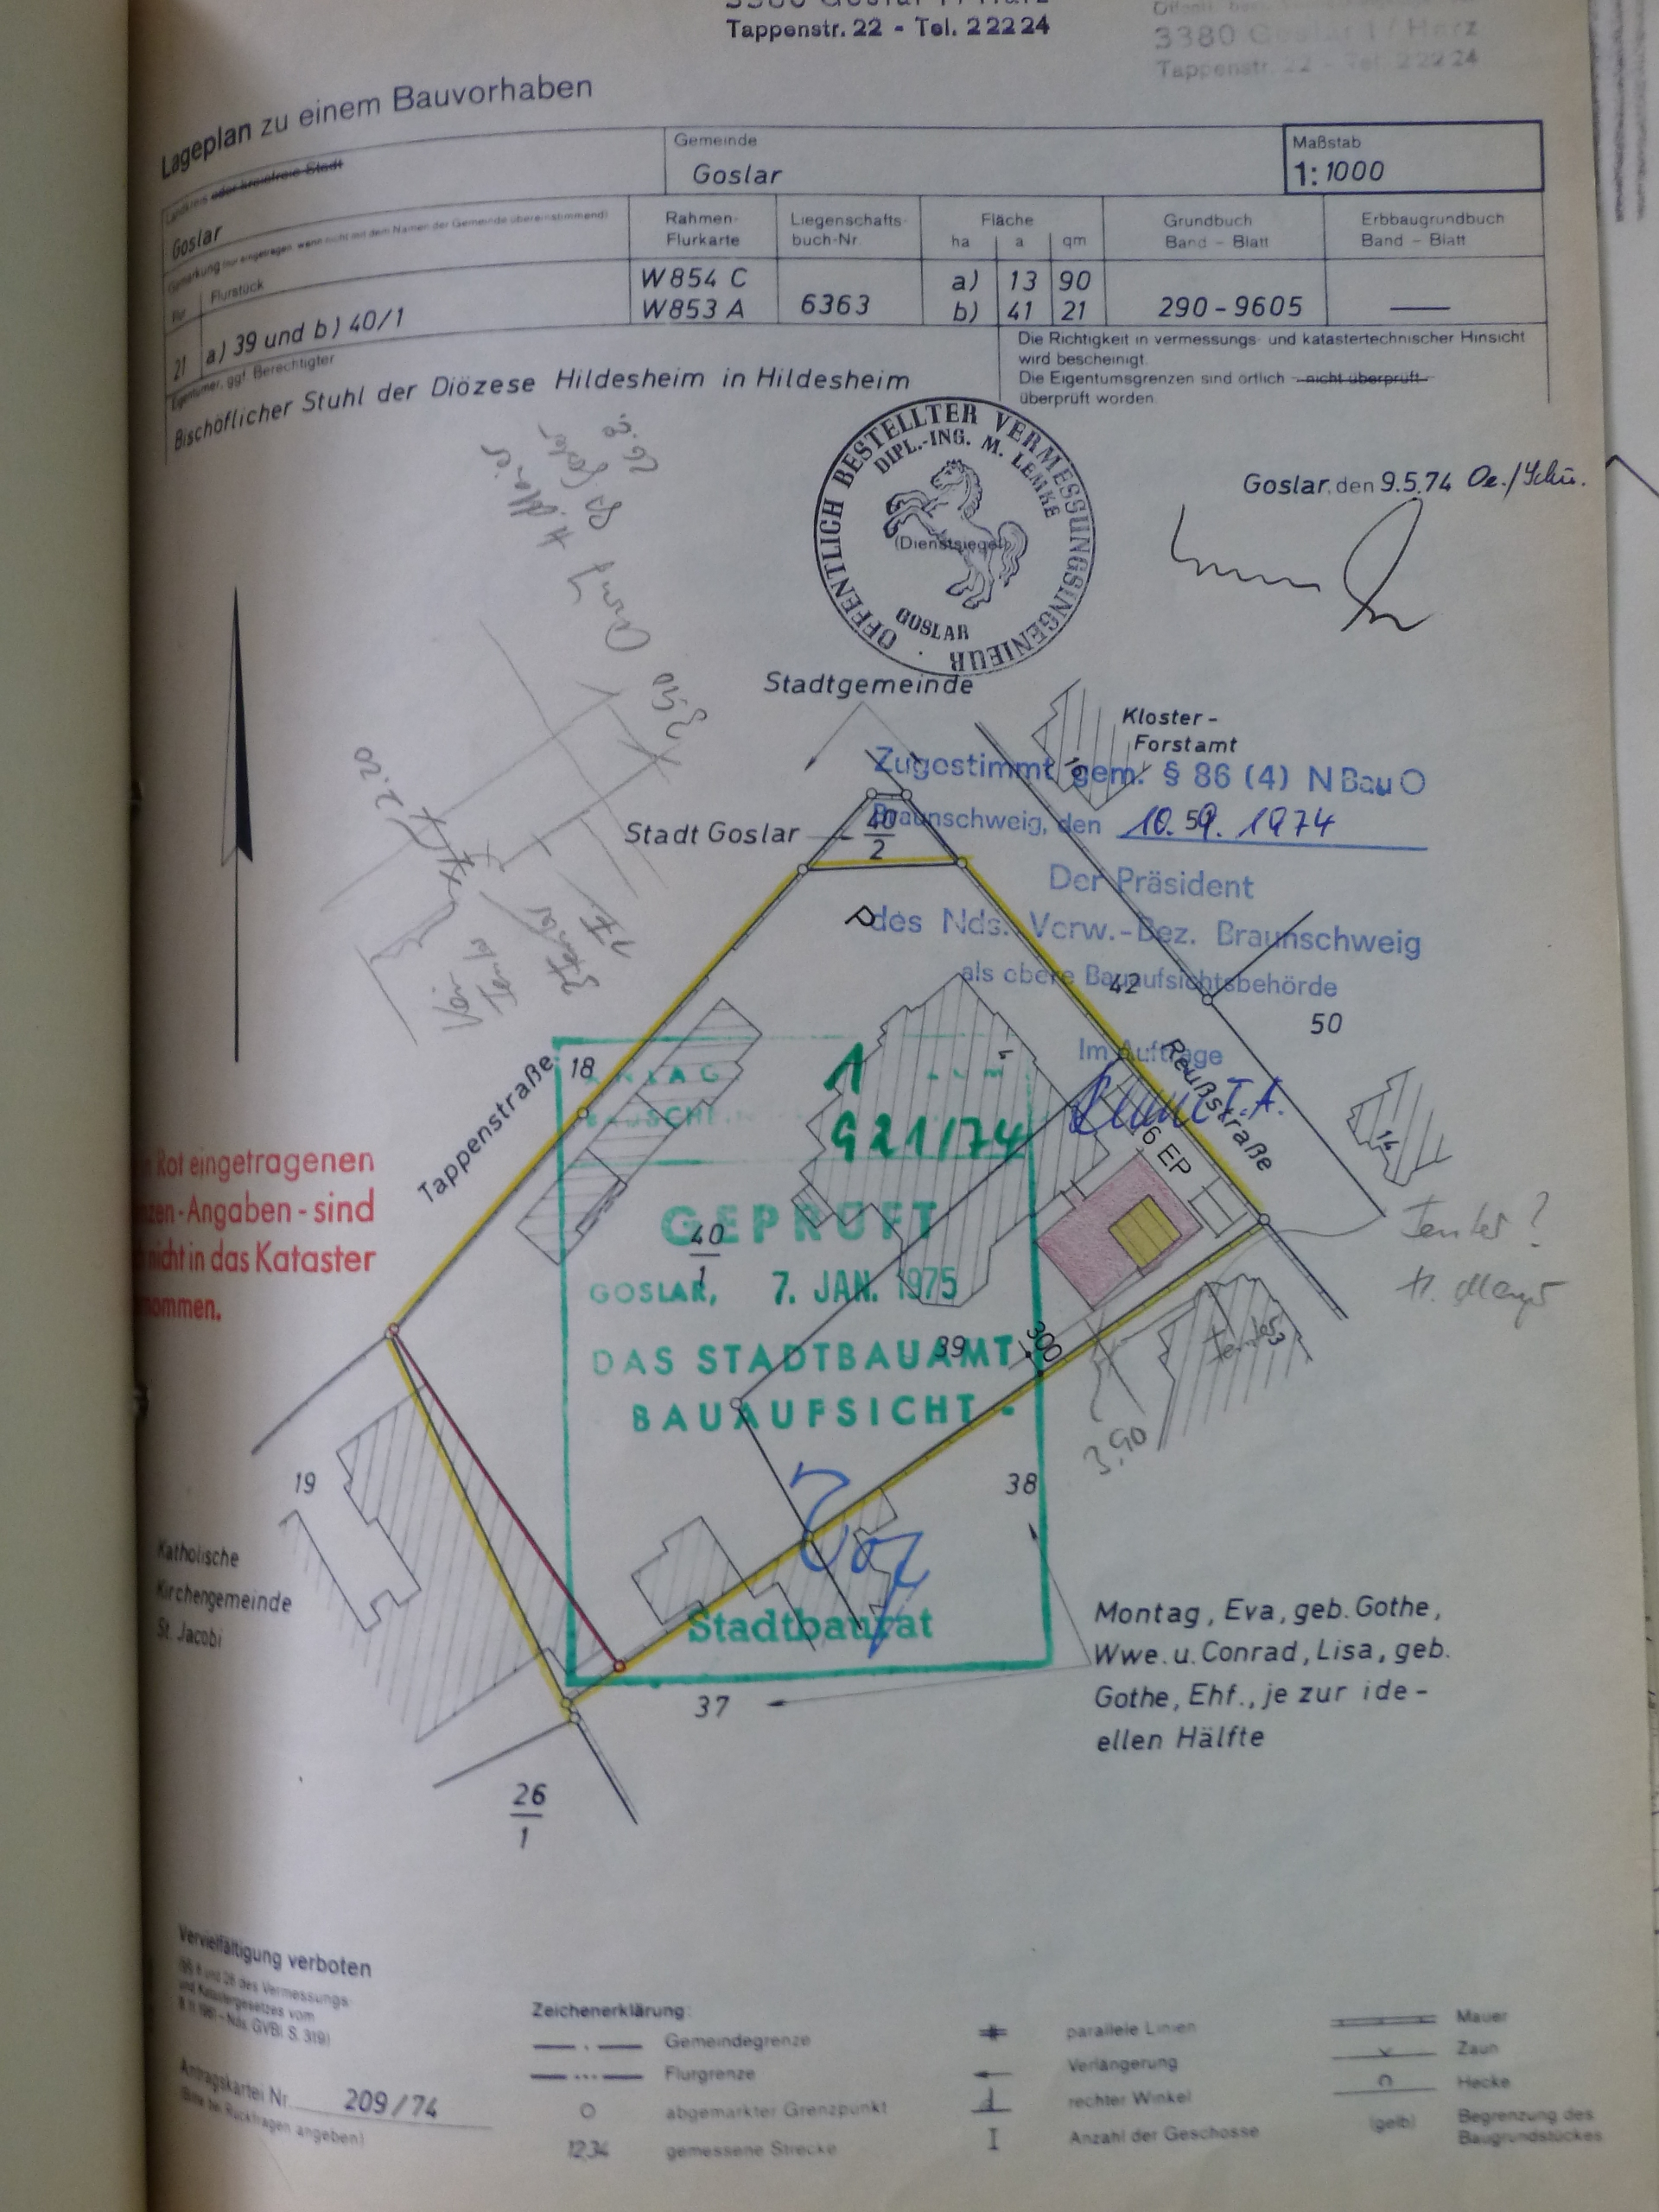 Tappenstr. 22 - Tel. 22224
3380 Goslar 1 / Harz
Tappenstr. 22 - Tel. 22224
Lageplan zu einem Bauvorhaben
Landkreis oder kreisfreie Stadt
Goslar
Gemeinde
Goslar
Maßstab
1:1000
Gemarkung (nur eingetragen, wenn nicht mit dem Namen der Gemeinde übereinstimmend)
Rahmen-
Flurkarte
Liegenschafts-
buch-Nr.
Fläche
ha a qm
Grundbuch
Band - Blatt
Erbbaugrundbuch
Band - Blatt
Flur
Flurstück
21
a) 39 und b) 40/1
W854 C
W853 A
6363
a) 13 90
b) 41 21
290-9605
Eigentümer, ggf. Berechtigter
Bischöflicher Stuhl der Diözese Hildesheim in Hildesheim
Die Richtigkeit in vermessungs- und katastertechnischer Hinsicht
wird bescheinigt.
Die Eigentumsgrenzen sind örtlich nicht überprüft
überprüft worden.
ÖFFENTLICH BESTELLTER VERMESSUNGSINGENIEUR
DIPL.-ING. M. LEMKE
(Dienstsiegel)
GOSLAR
Goslar, den 9.5.74
Stadtgemeinde
Kloster-
Forstamt
Zugestimmt gem. § 86 (4) NBauO
Braunschweig, den 10. 9. 1974
Der Präsident
des Nds. Verw.-Bez. Braunschweig
als obere Bauaufsichtsbehörde
Im Auftrage
Stadt Goslar
40
2
P
42
50
3,50
2.20
18
Tappenstraße
Reußstraße
4
14
6 EP
1
921/74
GEPRÜFT
40
1
GOSLAR, 7. JAN. 1975
DAS STADTBAUAMT
BAUAUFSICHT -
Stadtbaurat
39
300
3,90
Rot eingetragenen
-Angaben - sind
nicht in das Kataster
19
38
37
26
1
Katholische
Kirchengemeinde
St. Jacobi
Montag, Eva, geb. Gothe,
Wwe. u. Conrad, Lisa, geb.
Gothe, Ehf., je zur ide-
ellen Hälfte
Vervielfältigung verboten
Antragskartei Nr. 209/74
(Bitte bei Rückfragen angeben)
Zeichenerklärung:
Gemeindegrenze
Flurgrenze
abgemarkter Grenzpunkt
12,34 gemessene Strecke
parallele Linien
Verlängerung
rechter Winkel
I Anzahl der Geschosse
Mauer
Zaun
Hecke
(gelb) Begrenzung des
Baugrundstückes